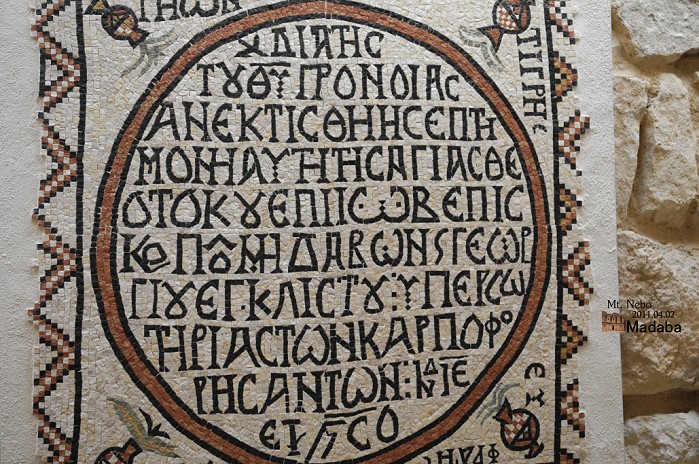 ΓΗΩΝ
ΔΙΑΤΗϹ
ΤΥΘΥΠΡΟΝΟΙΑϹ
ΑΝΕΚΤΙϹΘΗΗϹΕΠΤΗ
ΜΟΝΗΑΥΤΗΤΗϹΑΓΙΑϹΘΕ
ΟΤΟΚΥΕΠΙΙΩΒΕΠΙϹ
ΚΟΠΟΜΗΔΑΒΩΝϚΓΕΩΡ
ΓΙΥΕΓΚΛΙϹΤΥ:ΥΠΕΡϹΩ
ΤΗΡΙΑϹΤΩΝΚΑΡΠΟΦΟ
ΡΗϹΑΝΤΩΝ:ΙΝΔΙΕ
ΤΙΓΡΗϹ
ΕΥ
Mt. Nebo
2011.04.02
Madaba